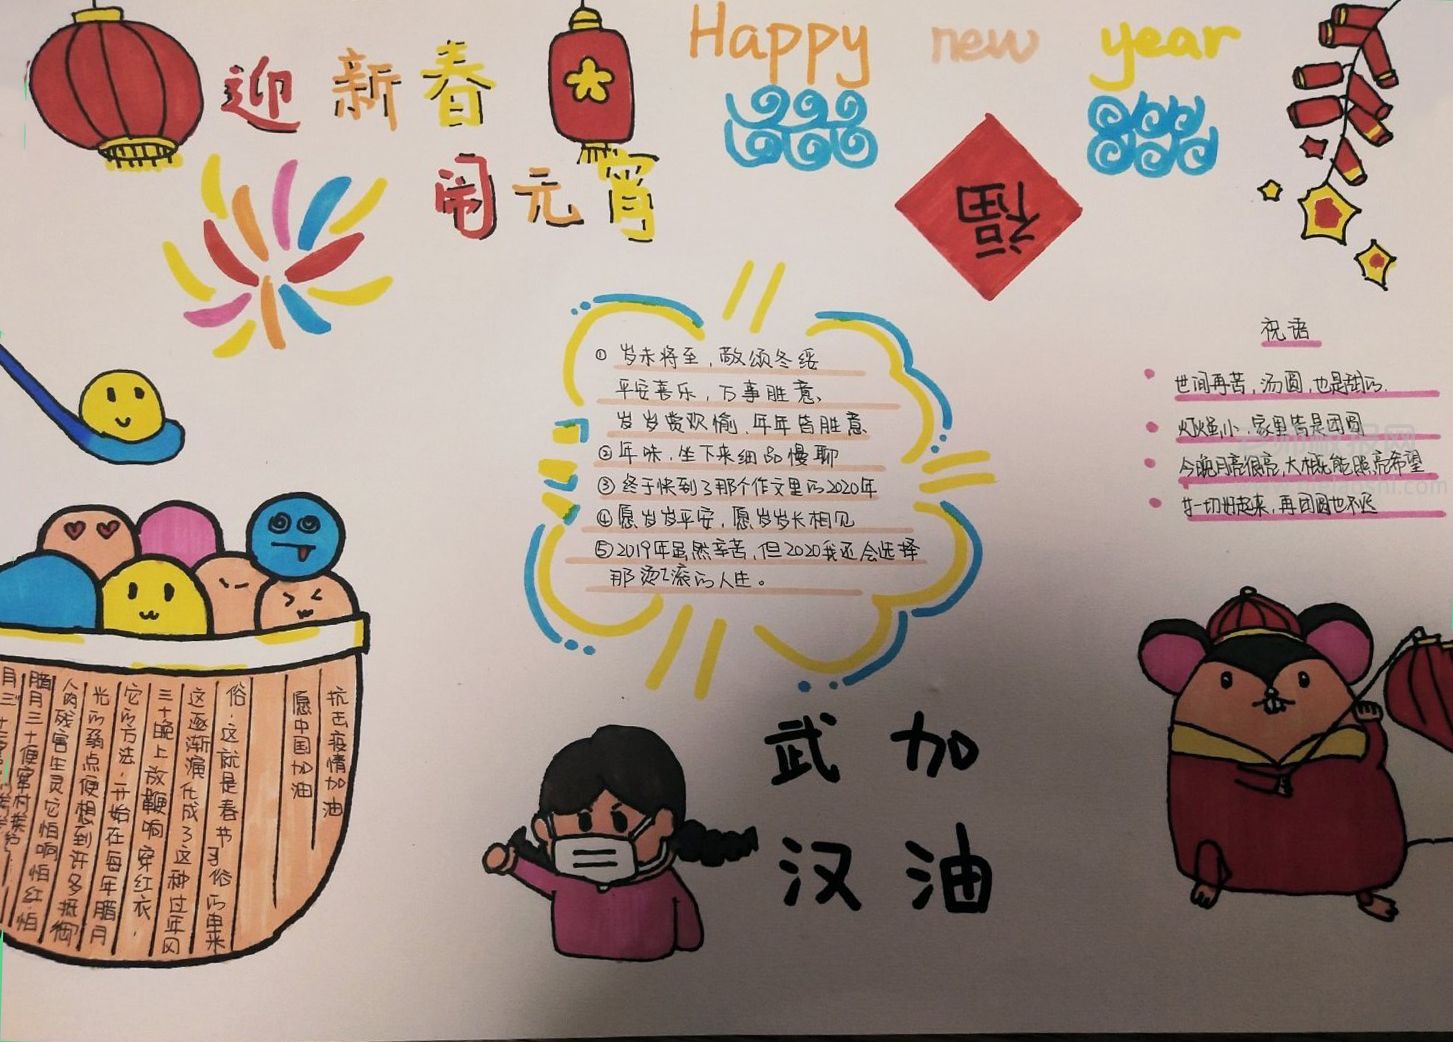 迎新春
闹元宵
Happy new year
福
① 岁末将至，敬颂冬绥
平安喜乐，万事胜意、
岁岁赏欢愉，年年皆胜意
② 年味，坐下来细品慢聊
③ 终于快到了那个作文里的2020年
④ 愿岁岁平安，愿岁岁长相见
⑤ 2019年虽然辛苦，但2020我还会选择
那 烫滚的人生。
祝语
世间再苦，汤圆，也是甜的.
灯火虽小，家里皆是团圆
今晚月亮很亮，大概能照亮希望
一切好起来，再团圆也不迟
抗击疫情加油
愿中国加油
俗，这就是春节习俗的由来
这逐渐演化成了这种过年风
三十晚上放鞭响穿红衣，
它的方法，开始在每年腊月
光的弱点便想到许多抵御
人肉残害生灵它怕响怕红怕
腊月三十便窜村
武 加
汉 油